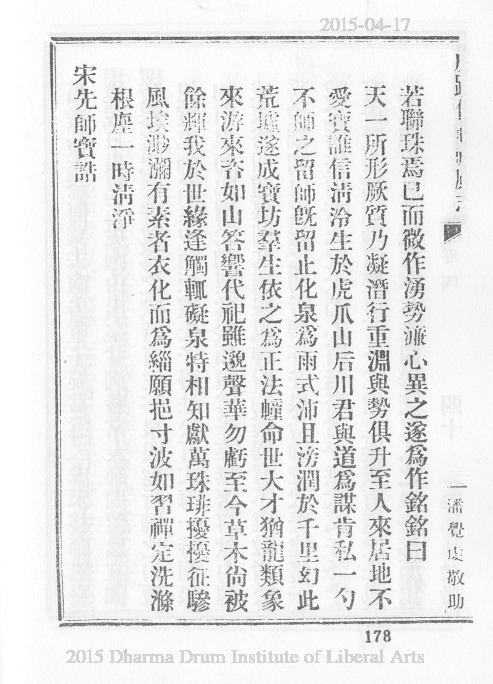 2015-04-17
若聯珠焉已而微作湧勢濂心異之遂為作銘銘曰
天一所形厥質乃凝潛行重淵與勢俱升至人來居地不
愛寶誰信清泠生於虎爪山后川君與道為謀肯私一勺
不師之留師既留止化泉為雨式沛且滂潤於千里幻此
荒墟遂成寶坊羣生依之為正法幢命世大才猶龍類象
來游來咨如山答響代祀雖邈聲華勿虧至今草木尚被
餘輝我於世緣逢觸輒礙泉特相知獻萬珠琲擾擾征驂
風埃渺瀰有素者衣化而為緇願挹寸波如習禪定洗滌
根塵一時清淨
宋先師寶誥
一潘覺虔敬助
178
2015 Dharma Drum Institute of Liberal Arts